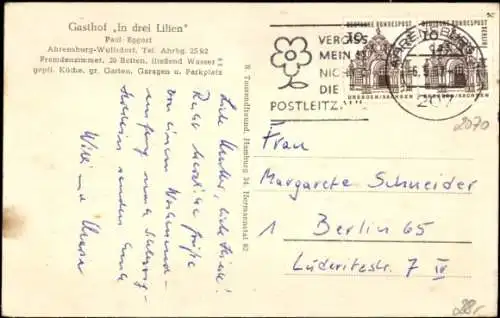 Gasthof „In drei Lilien"
Paul Eggert
Ahrensburg-Wulfsdorf, Tel. Ahrbg. 2592
Fremdenzimmer, 20 Betten, fließend Wasser
gepfl. Küche, gr. Garten, Garagen u. Parkplatz
Liebe Mutter, liebe
Recht herzliche Grüße
von einem Wochenend-
nach Schleswig-
Holstein senden Euch
Willi und
R. Tausendfreund, Hamburg 34, Hermannstal 82
VERGISS
MEIN
NICHT
DIE
POSTLEITZAHL
DEUTSCHE BUNDESPOST
DEUTSCHE BUNDESPOST BERLIN
10
10
DRESDEN/SACHSEN
DRESDEN/SACHSEN
AHRENSBURG
207
2070
Frau
Margarete Schneider
1 Berlin 65
Lüderitzstr. 7 IV